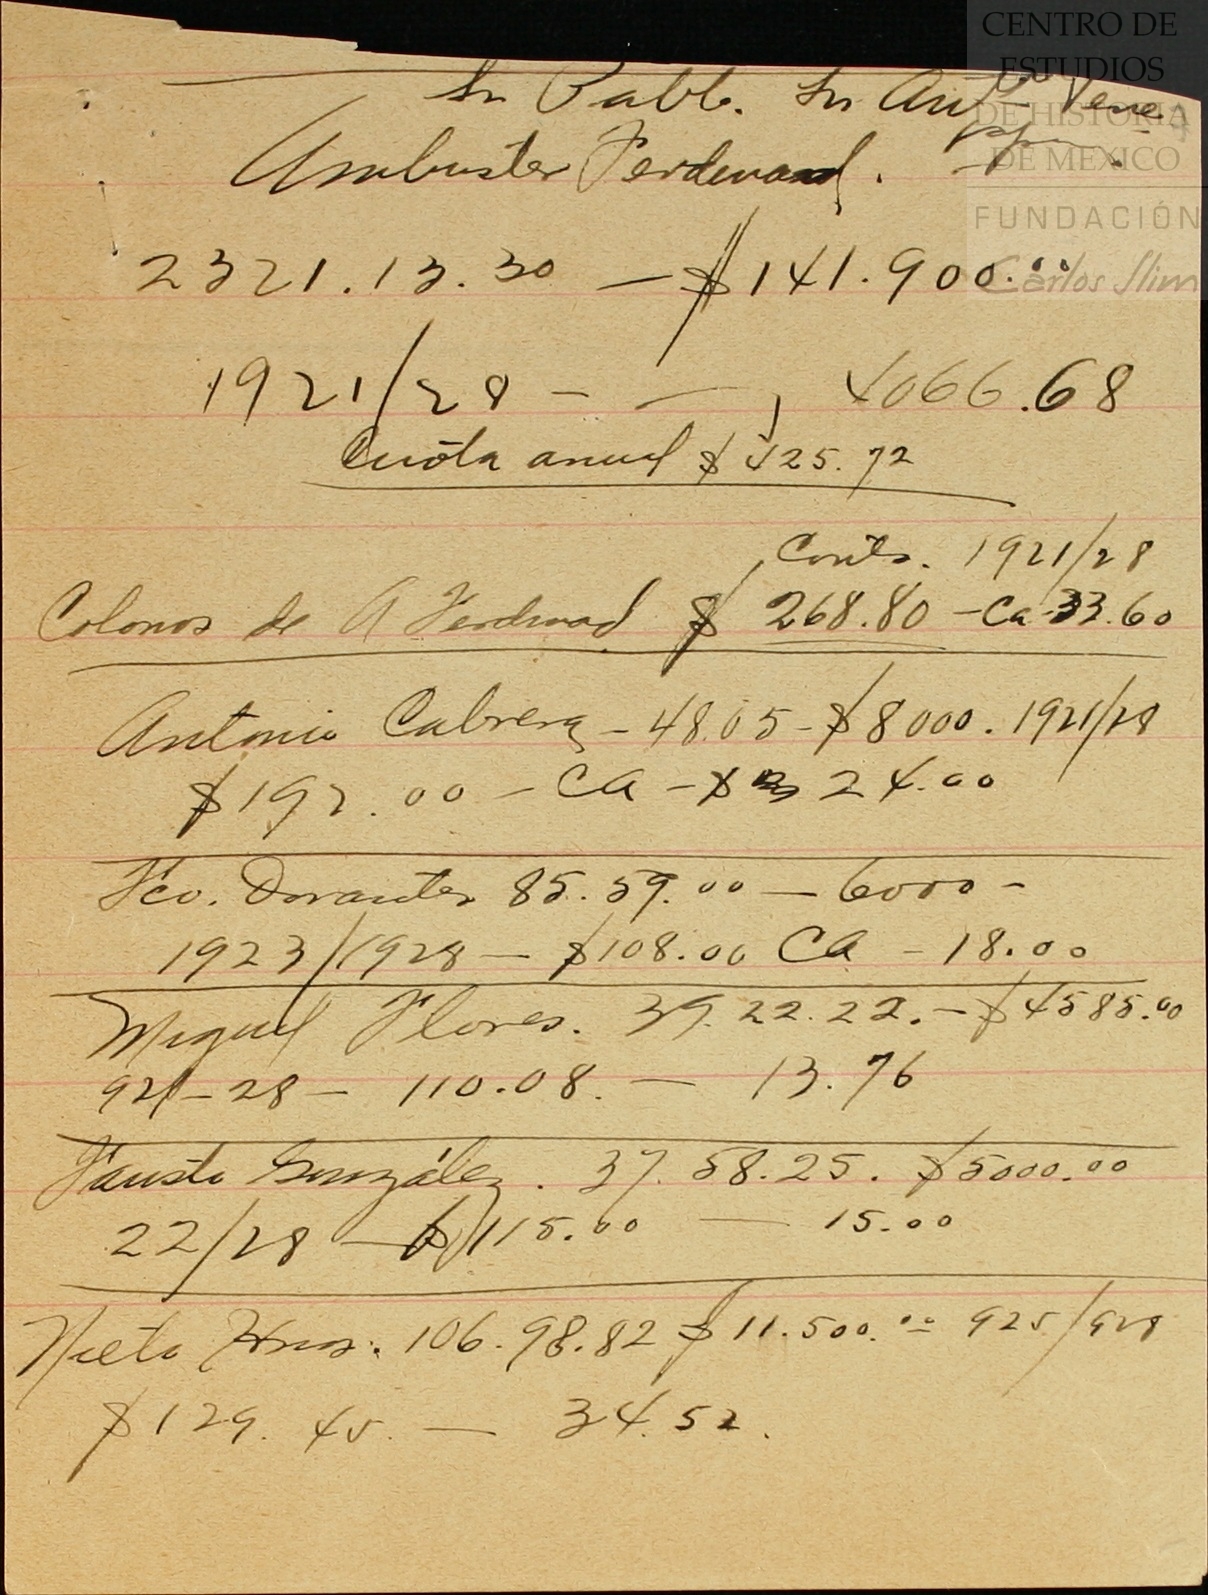 CENTRO DE
ESTUDIOS
DE HISTORIA
DE MEXICO
FUNDACIÓN
Carlos Slim
Sn Pablo. Sn Ant
Ambuster Ferdinand.
2321.13.30 — $141.900.00
1921/28 - — , 4066.68
Cuóta anual $ 425.72
Conts. 1921/28
Colonos de A Ferdinad $ 268.80 - Ca 33.60
Antonio Cabrera - 48.05 - $8000. 1921/28
$192.00 - CA - $ 24.00
Fco. Dorantes 85.59.00 — 6000 -
1923/1928 — $108.00 CA - 18.00
Miguel Flores. 39.22.22. - $4585.00
921-28 - 110.08. — 13.76
Fausto González. 37.58.25. $5000.00
22/28 — $115.00 — 15.00
Nieto Hnos. 106.98.82 $11.500.00 925/928
$129.45. — 34.52.